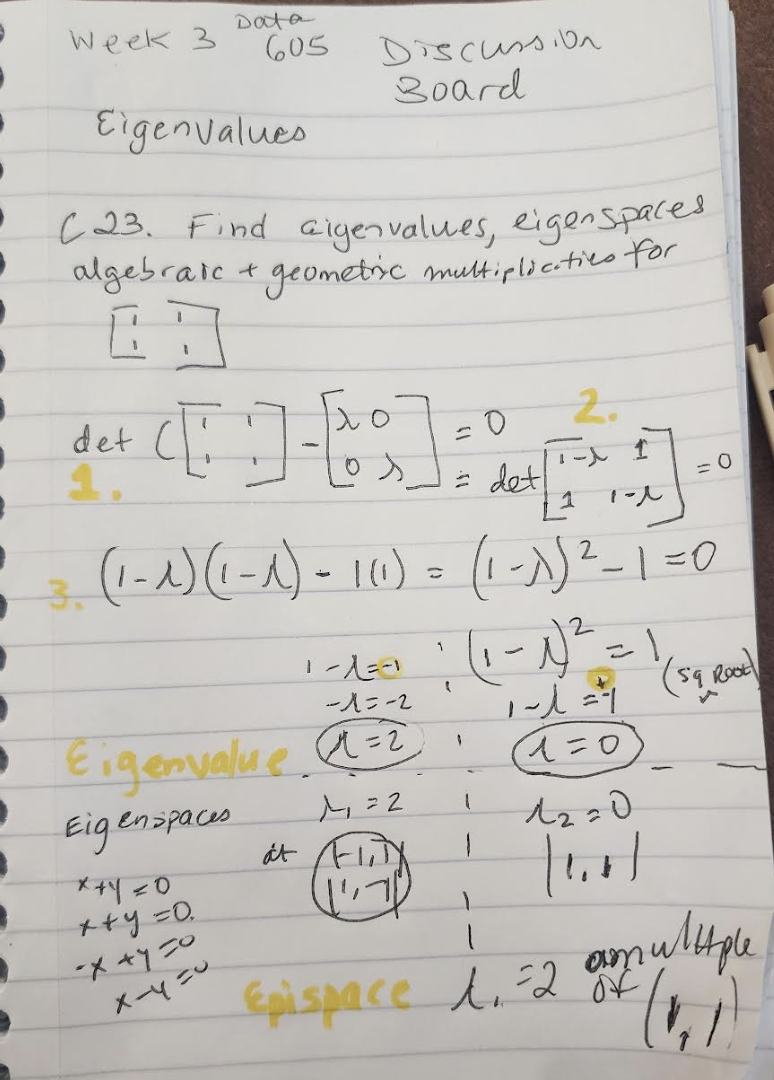 Week 3 Data 605 Discussion
Board
Eigenvalues
C23. Find eigenvalues, eigenspaces
algebraic + geometric multiplicities for
[1 1
1 1]
det ([1 1 1 1] - [λ 0 0 λ] = 0
1.
2.
= det [1-λ 1 1 1-λ] = 0
3. (1-λ)(1-λ) - 1(1) = (1-λ)² - 1 = 0
(1-λ)² = 1 (sq Root)
1-λ=-1
1-λ=+1
-λ=-2
Eigenvalue λ=2 λ=0
Eigenspaces λ₁=2 λ₂=0
at |-1, 1| |1, 1|
|1, -1|
x+y=0
x+y=0.
-x+y=0
x-y=0
Epispace λ₁=2 a multiple
of (1, 1)